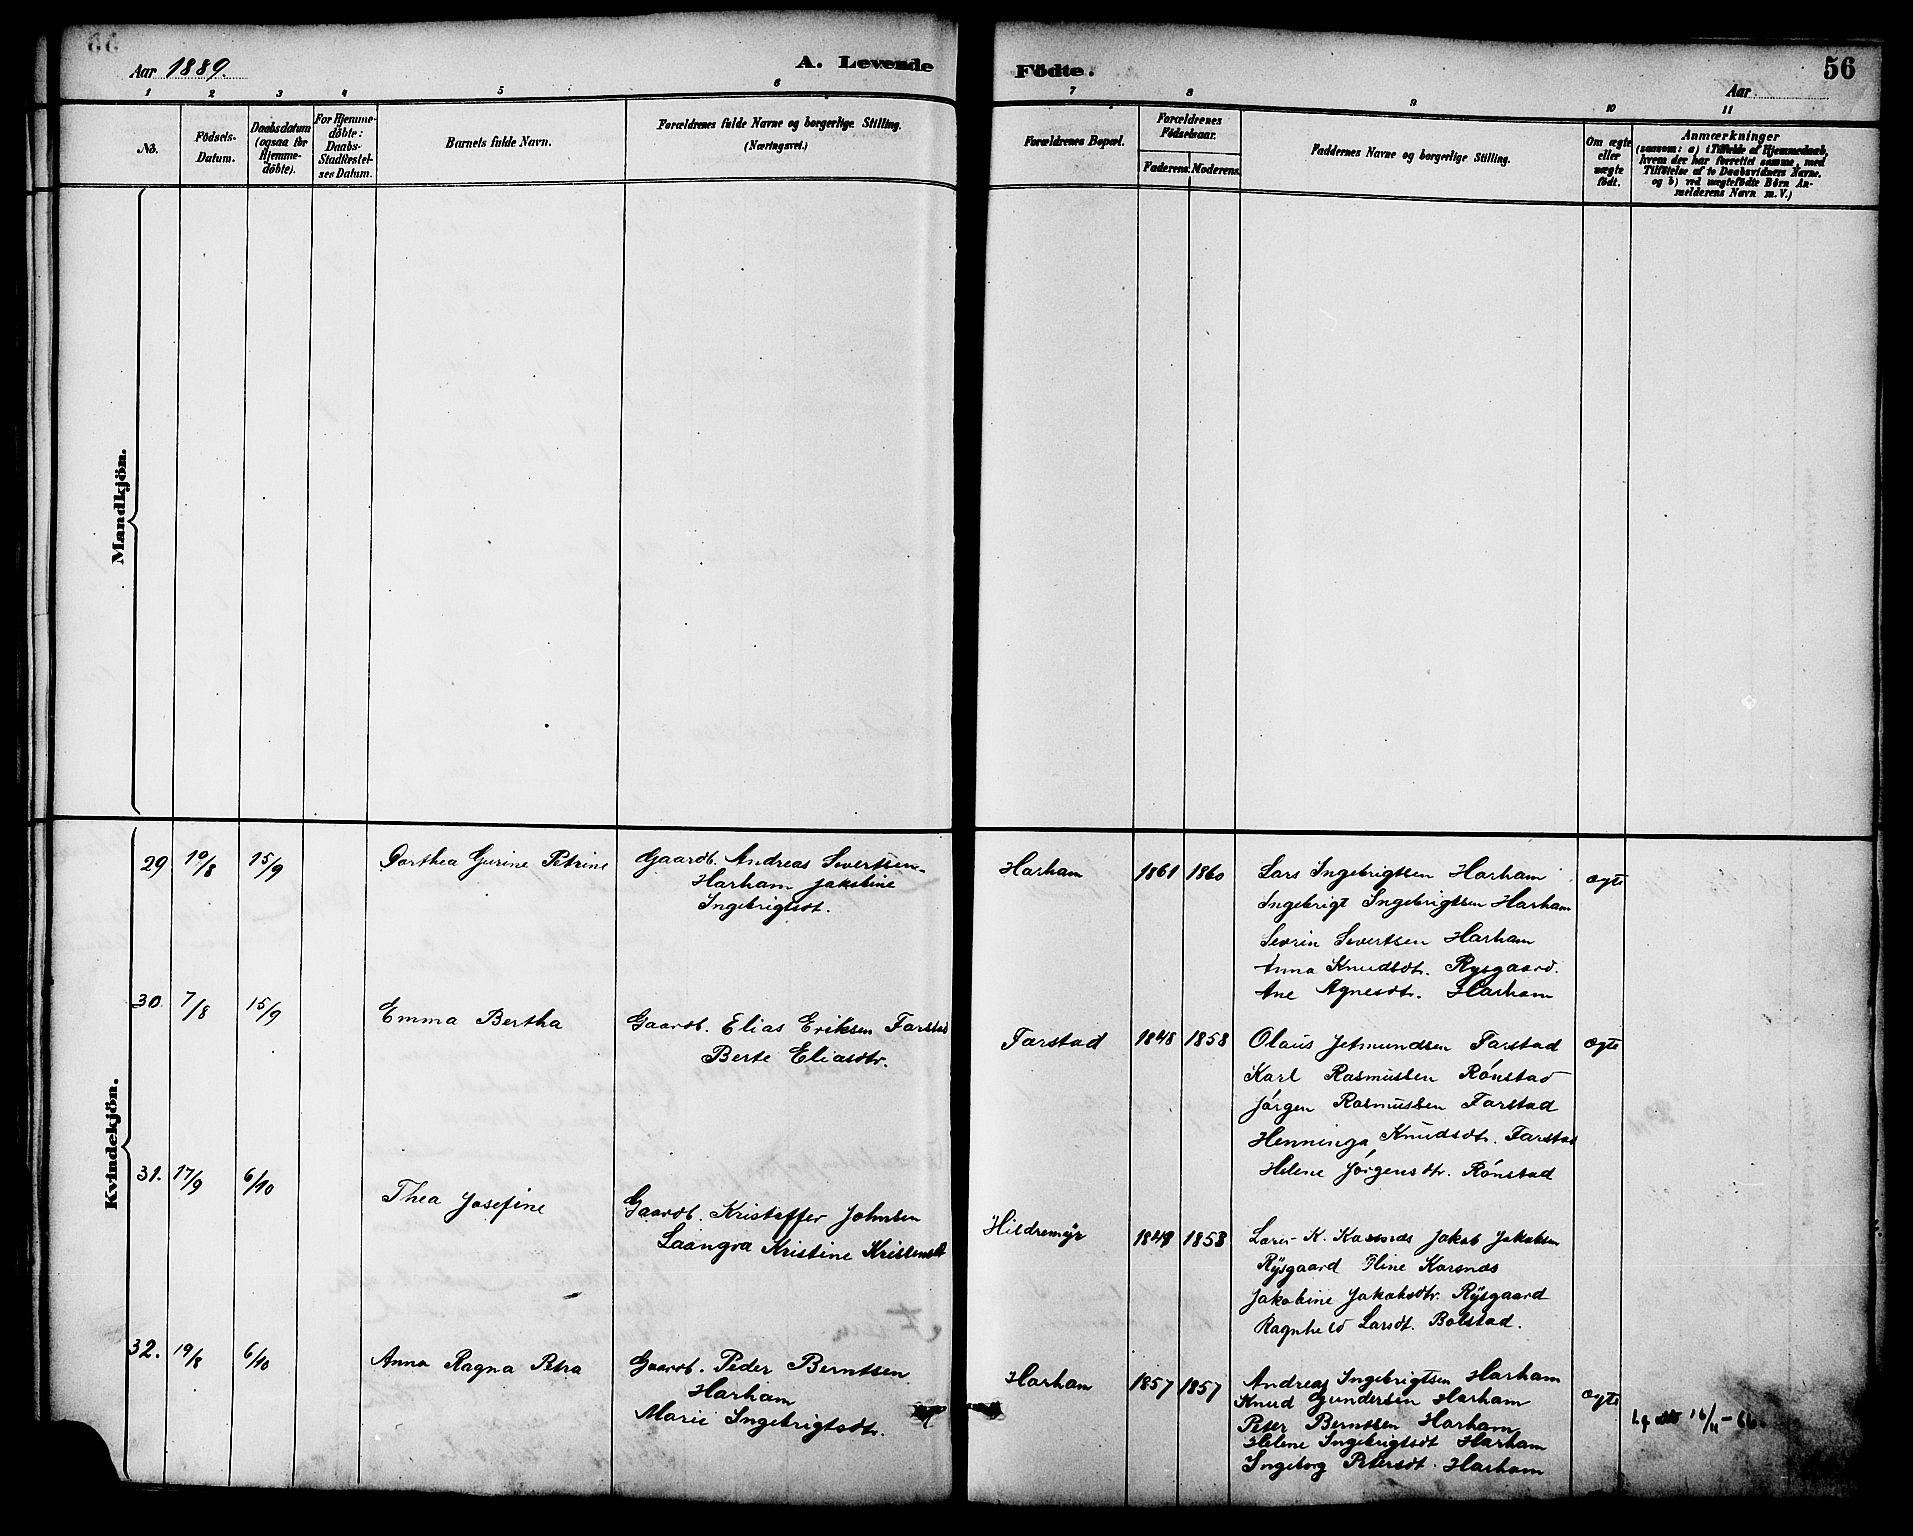 56
Aar 1889.
A. Levende
Födte.
Aar
1 2 3 4 5 6 7 8 9 10 11
No.
Födsels-
Datum.
Daabsdatum
(ogsaa for
Hjemme-
døbte).
For Hjemme-
døbte:
Daabs-
Stadfæstel-
ses Datum.
Barnets fulde Navn.
Forældrenes fulde Navne og borgerlige Stilling.
(Næringsvei.)
Forældrenes Bopæl.
Forældrenes
Födselsaar.
Faderens. Moderens.
Faddernes Navne og borgerlige Stilling.
Om ægte
eller
uægte
født.
Anmærkninger
(saasom: a) i Tilfælde af Hjemmedaab,
hvem der har forrettet samme, med
Tilføielse af to Daabsvidners Navne,
og b) ved uægtefødte Børn An-
melderens Navn m.V.)
Mandkjön.
Kvindekjön.
29 10/8 15/9 Dorthea Gurine Petrine
Gaardb. Andreas Severtsen
Harham Jakobine
Ingebrigtsdt.
Harham 1861 1860
Lars Ingebrigtsen Harham
Ingebrigt Ingebrigtsen Harham
Sevrin Severtsen Harham
Anna Knudsdtr. Rysgaard.
Ane Agnesdtr. Harham
ægte
30 7/8 15/9 Emma Bertha
Gaardb. Elias Eriksen Farstad
Berte Eliasdtr.
Farstad 1848 1858
Olaus Jetmundsen Farstad
Karl Rasmussen Rönstad
Jörgen Rasmussen Farstad
Henninga Knudsdtr. Farstad
Helene Jörgensdtr. Rönstad
ægte
31. 17/9 6/10 Thea Josefine
Gaardb. Kristoffer Johnsen
Kristine Kristensdt
Hildremyr 1848 1858
K. Karsnas Jakob Jakobsen
Rysgaard Oline Karsnas
Jakobine Jakobsdtr. Rysgaard
Ragnheld Larsdt. Bolstad.
32. 19/8 6/10 Anna Ragna Petra
Gaardb. Peder Berntsen
Harham
Marie Ingebrigtsdtr.
Harham 1857 1857
Andreas Ingebrigtsen Harham
Knud Gundersen Harham
Peter Berntsen Harham
Helene Ingebrigtsdt Harham
Ingeborg Petersdt. Harham
ægte
16/11-66